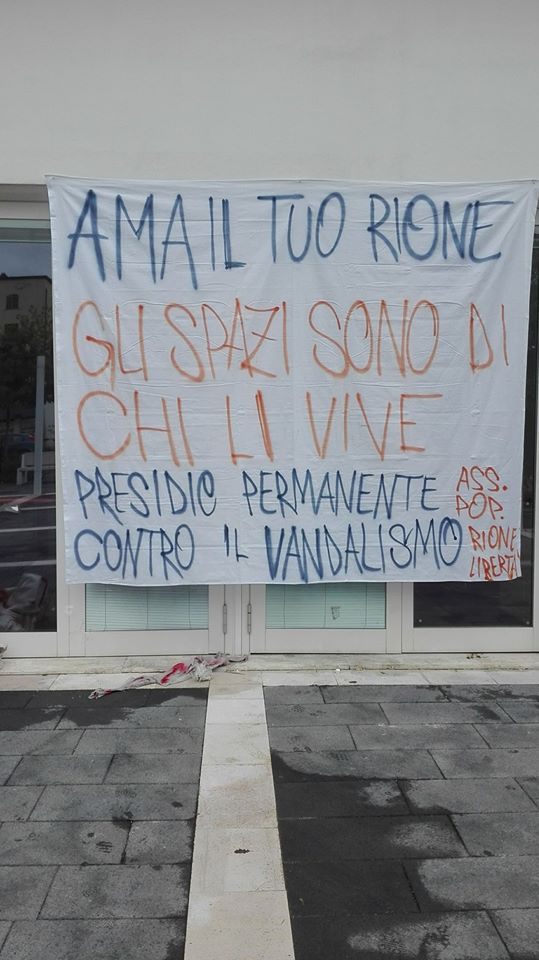 AMA IL TUO RIONE
GLI SPAZI SONO DI
CHI LI VIVE
PRESIDIO PERMANENTE
CONTRO IL VANDALISMO
ASS.
POP.
RIONE
LIBERTÀ